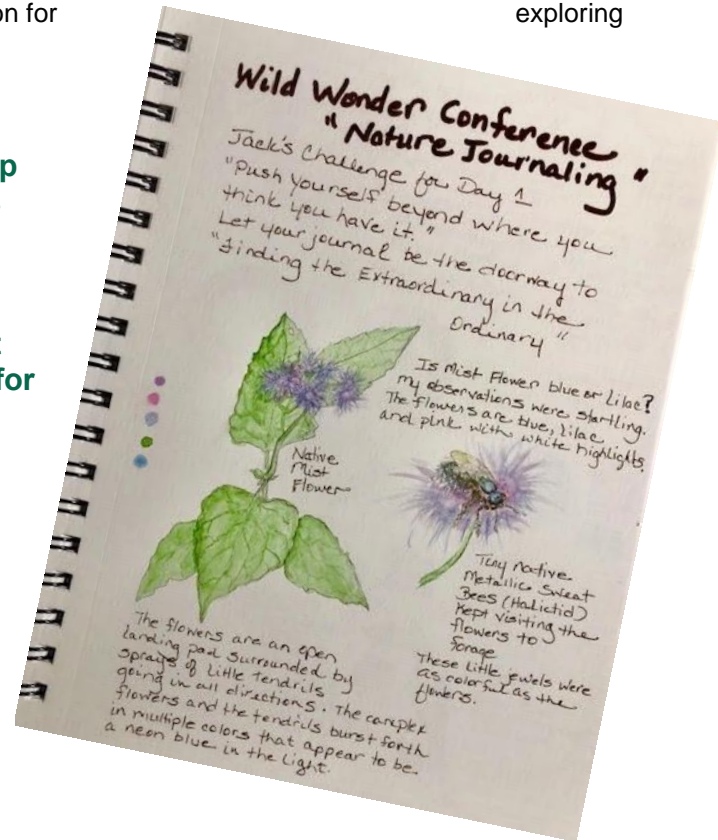 on for
exploring
p
for
Wild Wonder Conference
"Nature Journaling"
Jack's Challenge for Day 1
"Push yourself beyond where you
think you have it."
Let your journal be the doorway to
"Finding the Extraordinary in the
Ordinary"
Is Mist Flower blue or lilac?
My observations were startling.
The flowers are blue, lilac
and pink with white highlights.
Native
Mist
Flower
Tiny native
Metallic Sweat
Bees (Halictid)
Kept visiting the
flowers to
forage
These little jewels were
as colorful as the
flowers.
The flowers are an open
landing pad surrounded by
sprays of little tendrils
going in all directions. The complex
flowers and the tendrils burst forth
in multiple colors that appear to be
a neon blue in the light.